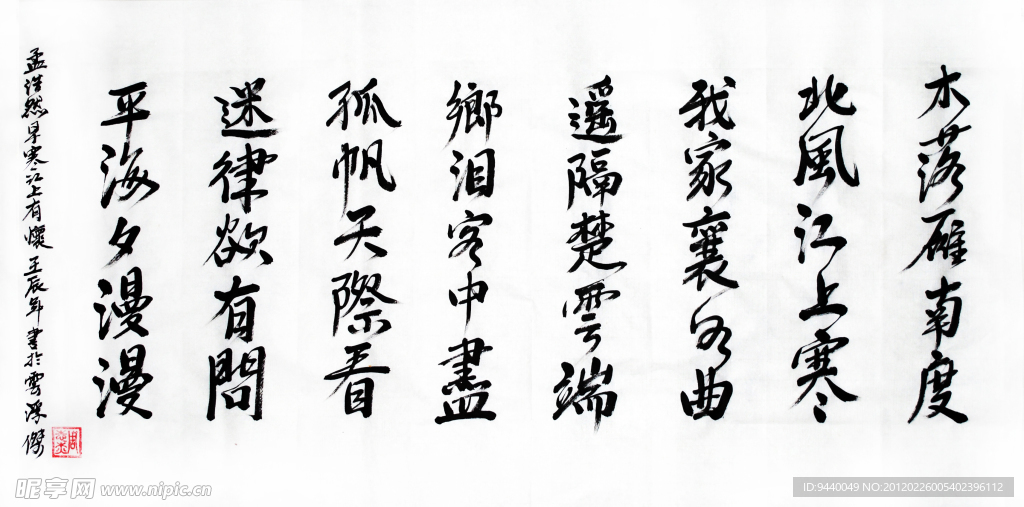 木落雁南度
北風江上寒
我家襄水曲
遥隔楚雲端
鄉泪客中盡
孤帆天際看
迷律欲有問
平海夕漫漫
孟浩然早寒江上有懷 壬辰年書於雲深傑
昵享网 www.nipic.cn
ID:9440049 NO:20120226005402396112